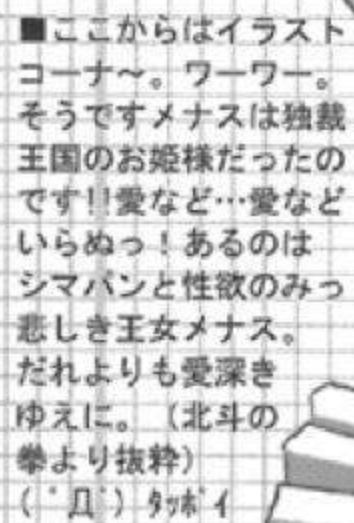 ■ここからはイラスト
コーナ～。ワーワー。
そうですメナスは独裁
王国のお姫様だったの
です!!愛など…愛など
いらぬっ！あるのは
シマパンと性欲のみっ
悲しき王女メナス。
だれよりも愛深き
ゆえに。（北斗の
拳より抜粋）
(ﾟДﾟ) ﾀｯﾎﾞｲ